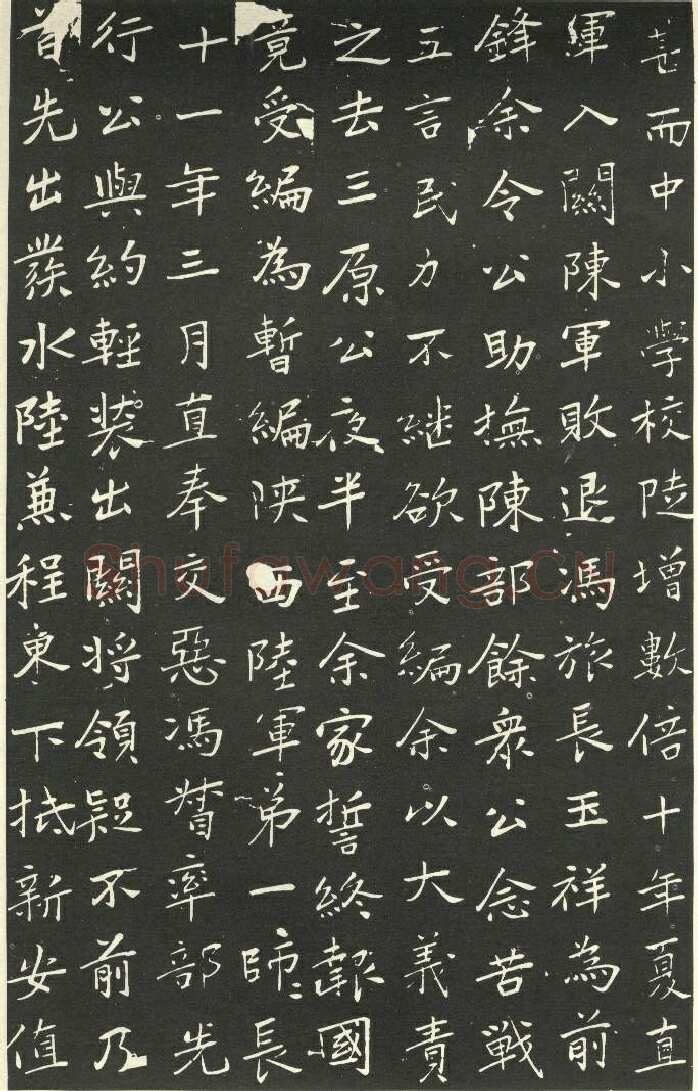 而中小學校陡增數倍十年夏直
軍入關陳軍敗退馮旅長玉祥為前
鋒余令公助撫陳部餘衆公念苦戰
五言民力不継欲受編余以大義責
之去三原公夜半至余家誓終報國
竟受編為暫編陝西陸軍弟一師〻長
十一年三月直奉交惡馮督率部先
行公與約輕裝出關將領疑不前乃
首先出發水陸兼程東下抵新安值
Shufawang.cn